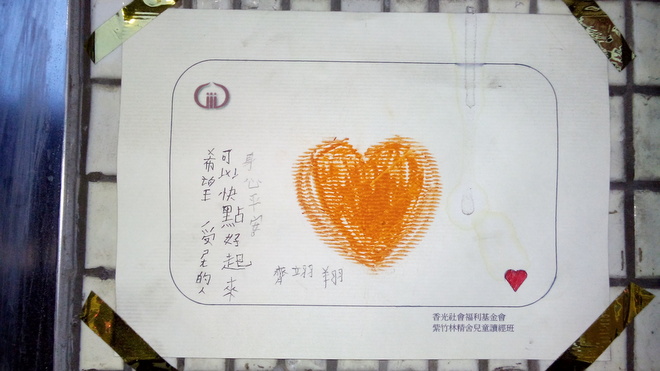 希望 受災的人
可以快點好起來
心平安
齊翊翔
香光社會福利基金會
紫竹林精舍兒童讀經班